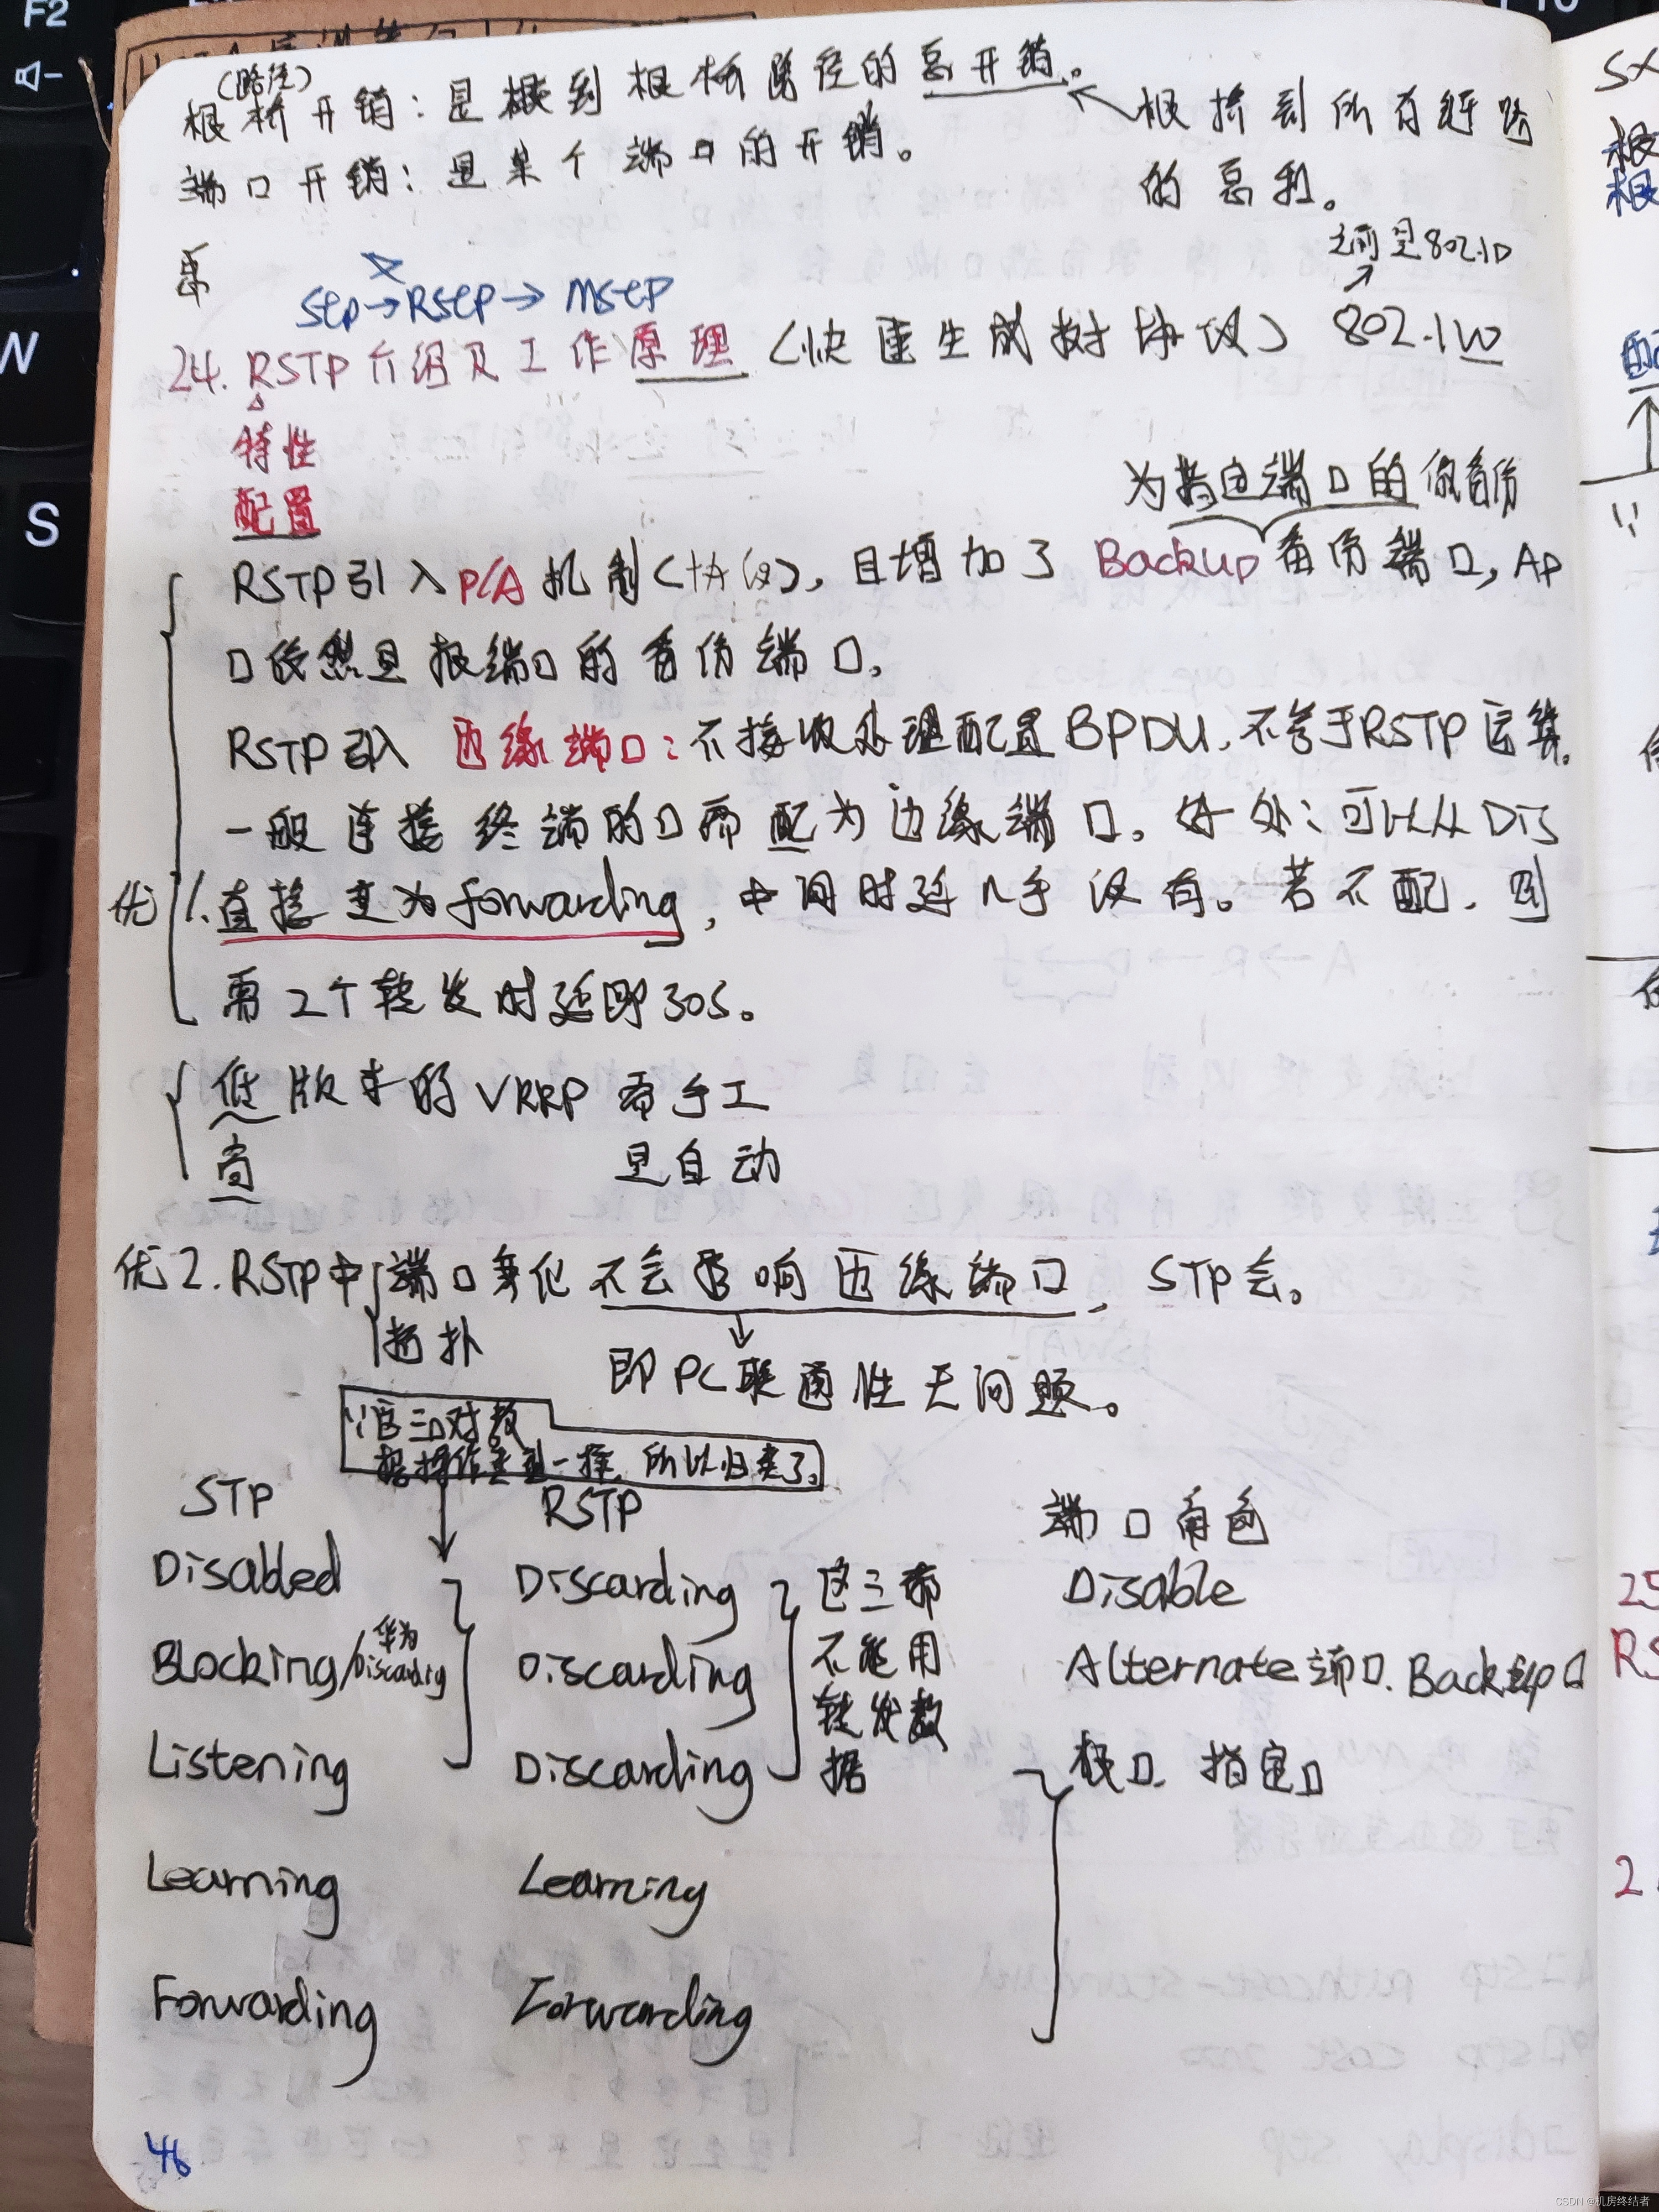 (路径)
根桥开销：是根到根桥路径的总开销。
根桥到所有链路
的总和。
端口开销：是某个端口的开销。
stp→RSTP→MSTP
之前是802.1D
24. RSTP介绍及工作原理（快速生成树协议）802.1W
特性
配置
为指定端口的做备份
RSTP引入P/A机制（协议），且增加了Backup备份端口，AP
口依然是根端口的备份端口。
RSTP引入 边缘端口：不接收处理配置BPDU，不参于RSTP运算。
一般连接终端的口需配为边缘端口。好处：可以从Dis
优1.直接变为forwarding，中间时延几乎没有。若不配，则
需2个转发时延即30s。
低版本的VRRP 需手工
高 是自动
优2. RSTP中端口变化不会影响边缘端口，STP会。
拓扑
即PC联通性无问题。
∵这三口对数
据操作类型一样，所以归类了。
STP RSTP 端口角色
Disabled Discarding 这三都 Disable
Blocking/华为Discardig Discarding 不能用 Alternate端口、Backup口
转发数
Listening Discarding 据 根口、指定口
Learning Learning
Forwarding Forwarding
46
F2
W
S
CSDN @机房终结者